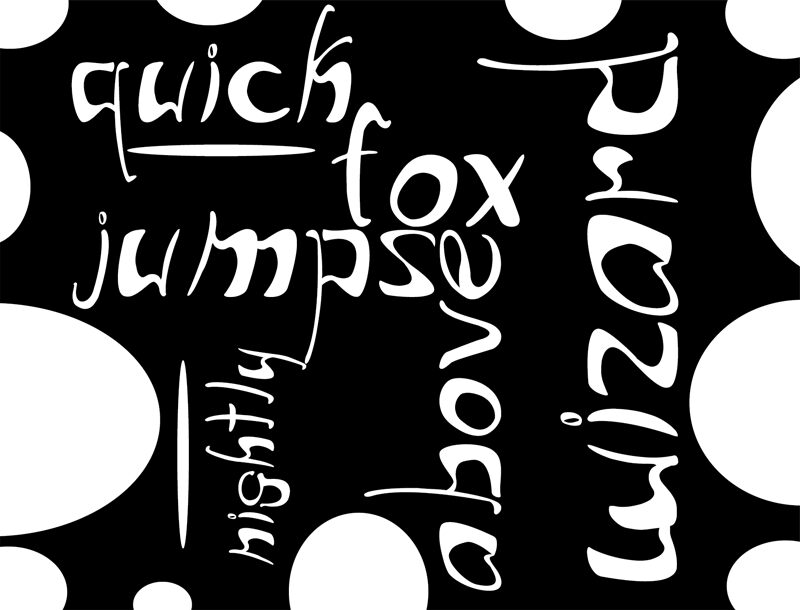 quick
fox
jumps
nightly
above
wizard